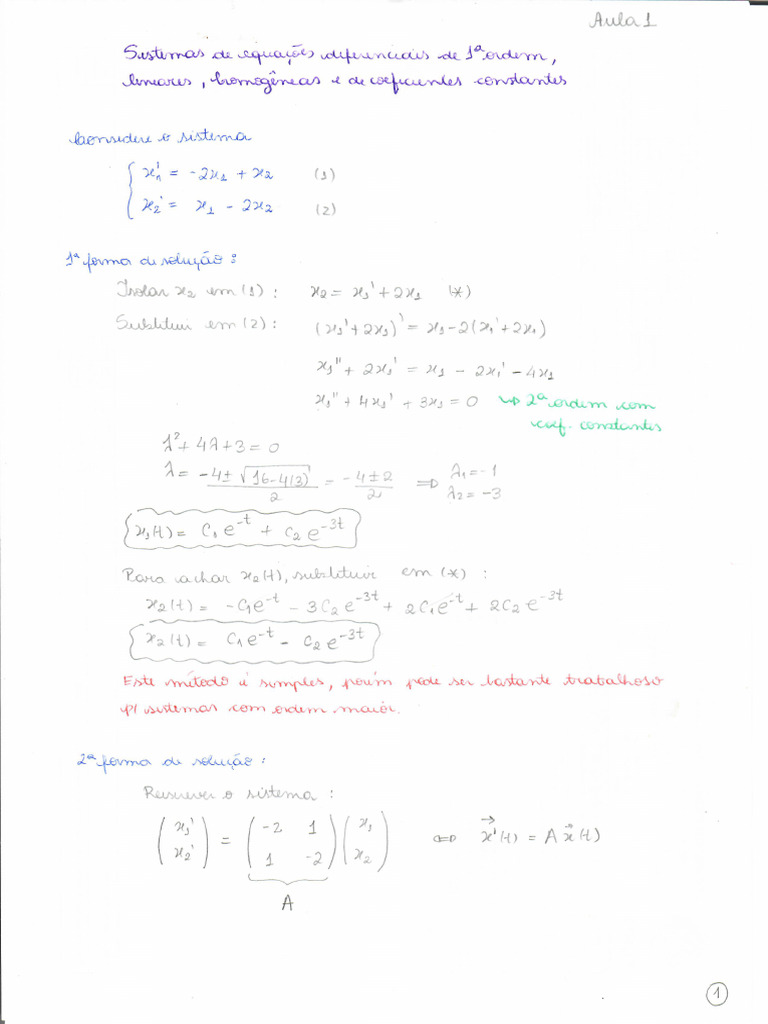 Aula 1
Sistemas de equações diferenciais de 1ª ordem,
lineares, homogêneas e de coeficientes constantes
Considere o sistema
x₁' = -2x₁ + x₂ (1)
x₂' = x₁ - 2x₂ (2)
1ª forma de solução:
Isolar x₂ em (1): x₂ = x₁' + 2x₁ (*)
Substitui em (2): (x₁' + 2x₁)' = x₁ - 2(x₁' + 2x₁)
x₁'' + 2x₁' = x₁ - 2x₁' - 4x₁
x₁'' + 4x₁' + 3x₁ = 0 ↳ 2ª ordem com
coef. constantes
λ² + 4λ + 3 = 0
λ = (-4 ± √(16 - 4(3)))/2 = (-4 ± 2)/2 ⇒ λ₁ = -1
λ₂ = -3
x₁(t) = C₁e^{-t} + C₂e^{-3t}
Para achar x₂(t), substituir em (*):
x₂(t) = -C₁e^{-t} - 3C₂e^{-3t} + 2C₁e^{-t} + 2C₂e^{-3t}
x₂(t) = C₁e^{-t} - C₂e^{-3t}
Este método é simples, porém pode ser bastante trabalhoso
p/ sistemas com ordem maior.
2ª forma de solução:
Reescrever o sistema:
(x₁' x₂') = (-2 1 1 -2)(x₁ x₂) ⇔ x⃗'(t) = A x⃗(t)
A
1